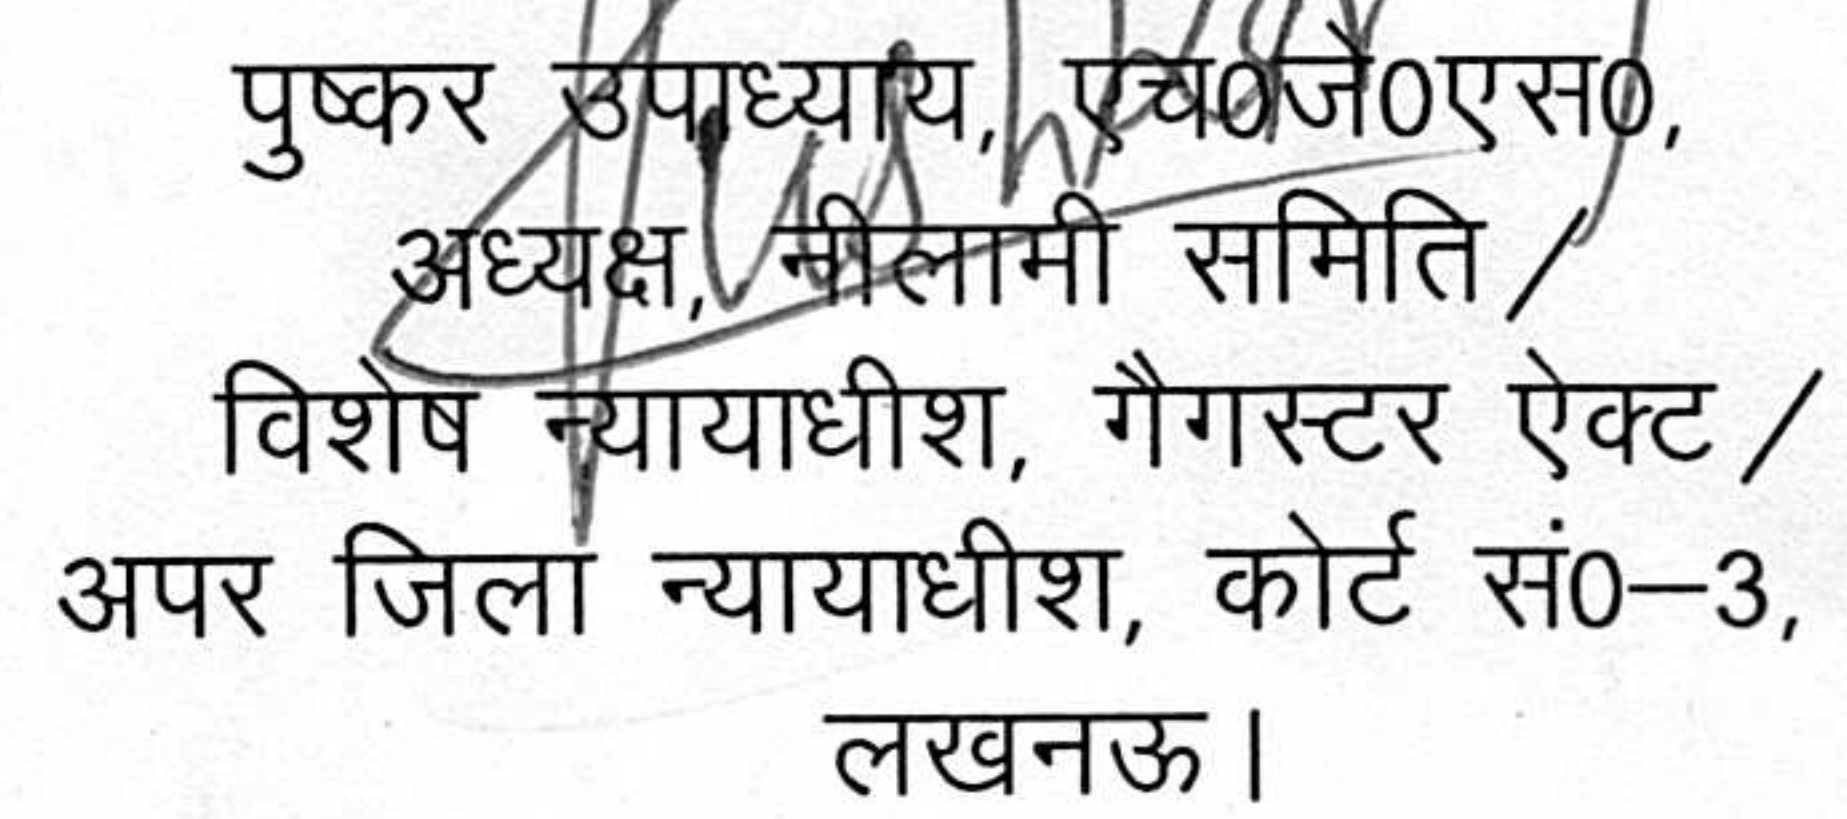 पुष्कर उपाध्याय, एच0जे0एस0,
अध्यक्ष, नीलामी समिति /
विशेष न्यायाधीश, गैगस्टर ऐक्ट /
अपर जिला न्यायाधीश, कोर्ट सं0–3,
लखनऊ।